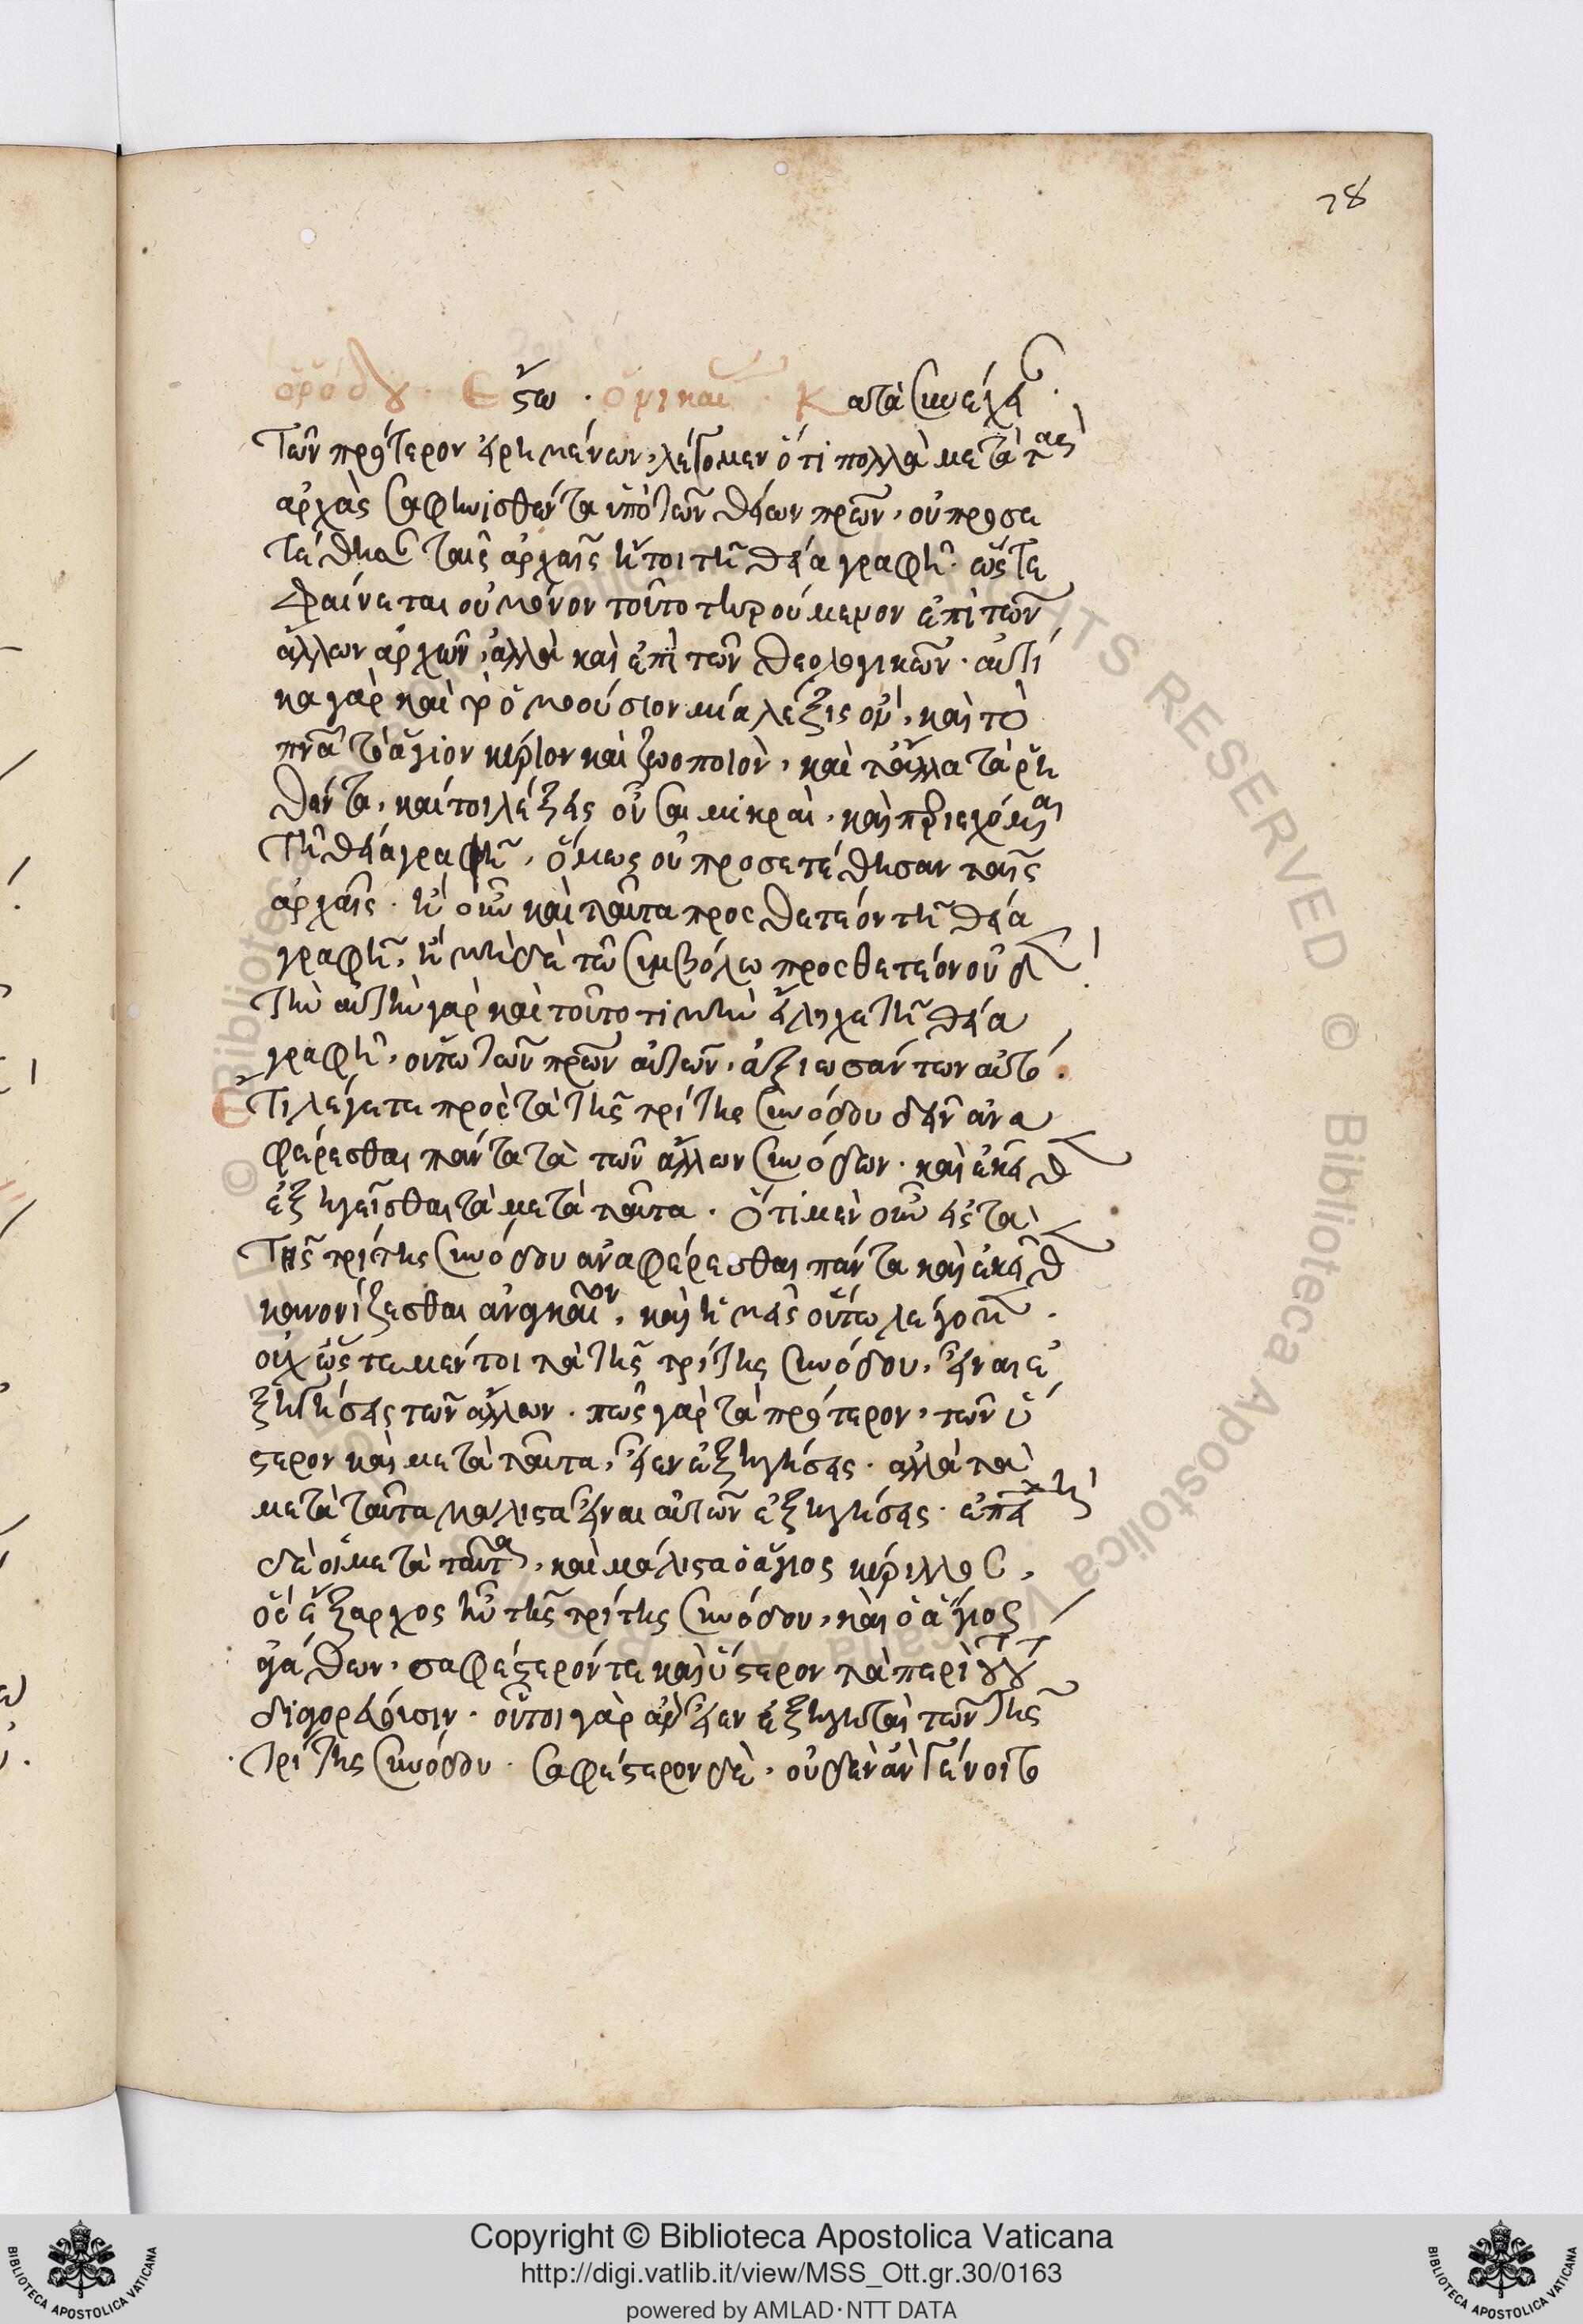 78
ὀρθόδοξ. Ἔστω. ὁ νικαί. Κατὰ συνέχει.
τῶν πρότερον εἰρημένων, λέγομεν ὅτι πολλὰ μετὰ τὰς
ἀρχὰς σαφηνισθέντα ὑπὸ τῶν θείων πρων, οὐ προσε
τέθησ ταῖς ἀρχαῖς ἤτοι τῆ θεία γραφῆ. ὥς τε
φαίνεται οὐ μόνον τοῦτο τηρούμενον ἐπὶ τῶν
ἄλλων ἀρχῶν, ἀλλὰ καὶ ἐπὶ τῶν θεολογικῶν. αὐτί
κα γὰρ καὶ τὸ ὁμοούσιον μία λέξις ὂν, καὶ τὸ
πνᾶ τὸ ἅγιον κύριον καὶ ζωοποιὸν, καὶ τἄλλα τὰ ῥη
θέντα, καίτοι λέξεις οὖσαι μικραὶ, καὶ περιεχόμεναι
τῆ θεία γραφῆ, ὅμως οὐ προσετέθησαν ταῖς
ἀρχαῖς. ἢ οὖν καὶ ταῦτα προσθετέον τῆ θεία
γραφῆ, ἢ μὴ δὲ τῶ συμβόλω προσθετέον οὐδέν.
τὴν αὐτὴν γὰρ καὶ τοῦτο τιμὴν εἴληχε τῆ θεία
γραφῆ, οὕτω τῶν πρων αὐτῶν, ἀξιωσάντων αὐτό.
Ἔτι λέγετε πρὸς τὰ τῆς τρίτης συνόδου δεῖν ἀνα
φέρεσθαι πάντα τὰ τῶν ἄλλων συνόδων. καὶ ἐκεῖθεν
ἐξηγεῖσθαι τὰ μετὰ ταῦτα. ὅτι μὲν οὖν εἰς τὰ
τῆς τρίτης συνόδου ἀναφέρεσθαι πάντα καὶ ἐκεῖθεν
κανονίζεσθαι ἀναγκαῖον, καὶ ἡμεῖς οὕτω λέγομεν.
οὐχ ὥς τε μέντοι τὰ τῆς τρίτης συνόδου, εἶναι ἐ
ξηγήσεις τῶν ἄλλων. πῶς γὰρ τὰ πρότερον, τῶν ὕ
στερον καὶ μετὰ ταῦτα, εἶεν ἐξηγήσεις. ἀλλὰ τὰ
μετὰ ταῦτα μάλιστα εἶναι αὐτῶν ἐξηγήσεις. ἐπεὶ
δὲ οἱ μετὰ ταῦτα, καὶ μάλιστα ὁ ἅγιος κύριλλος,
ὅς ἔξαρχος ἦν τῆς τρίτης συνόδου, καὶ ὁ ἅγιος
ἀγάθων, σαφέστερόν τε καὶ ὕστερον τὰ περὶ τούτου
διηγορεύουσιν. οὗτοι γὰρ ἂν εἶεν ἐξηγηταὶ τῶν τῆς
τρίτης συνόδου. σαφέστερον δὲ, οὐδὲν ἂν γένοιτο
Copyright © Biblioteca Apostolica Vaticana
http://digi.vatlib.it/view/MSS_Ott.gr.30/0163
powered by AMLAD·NTT DATA